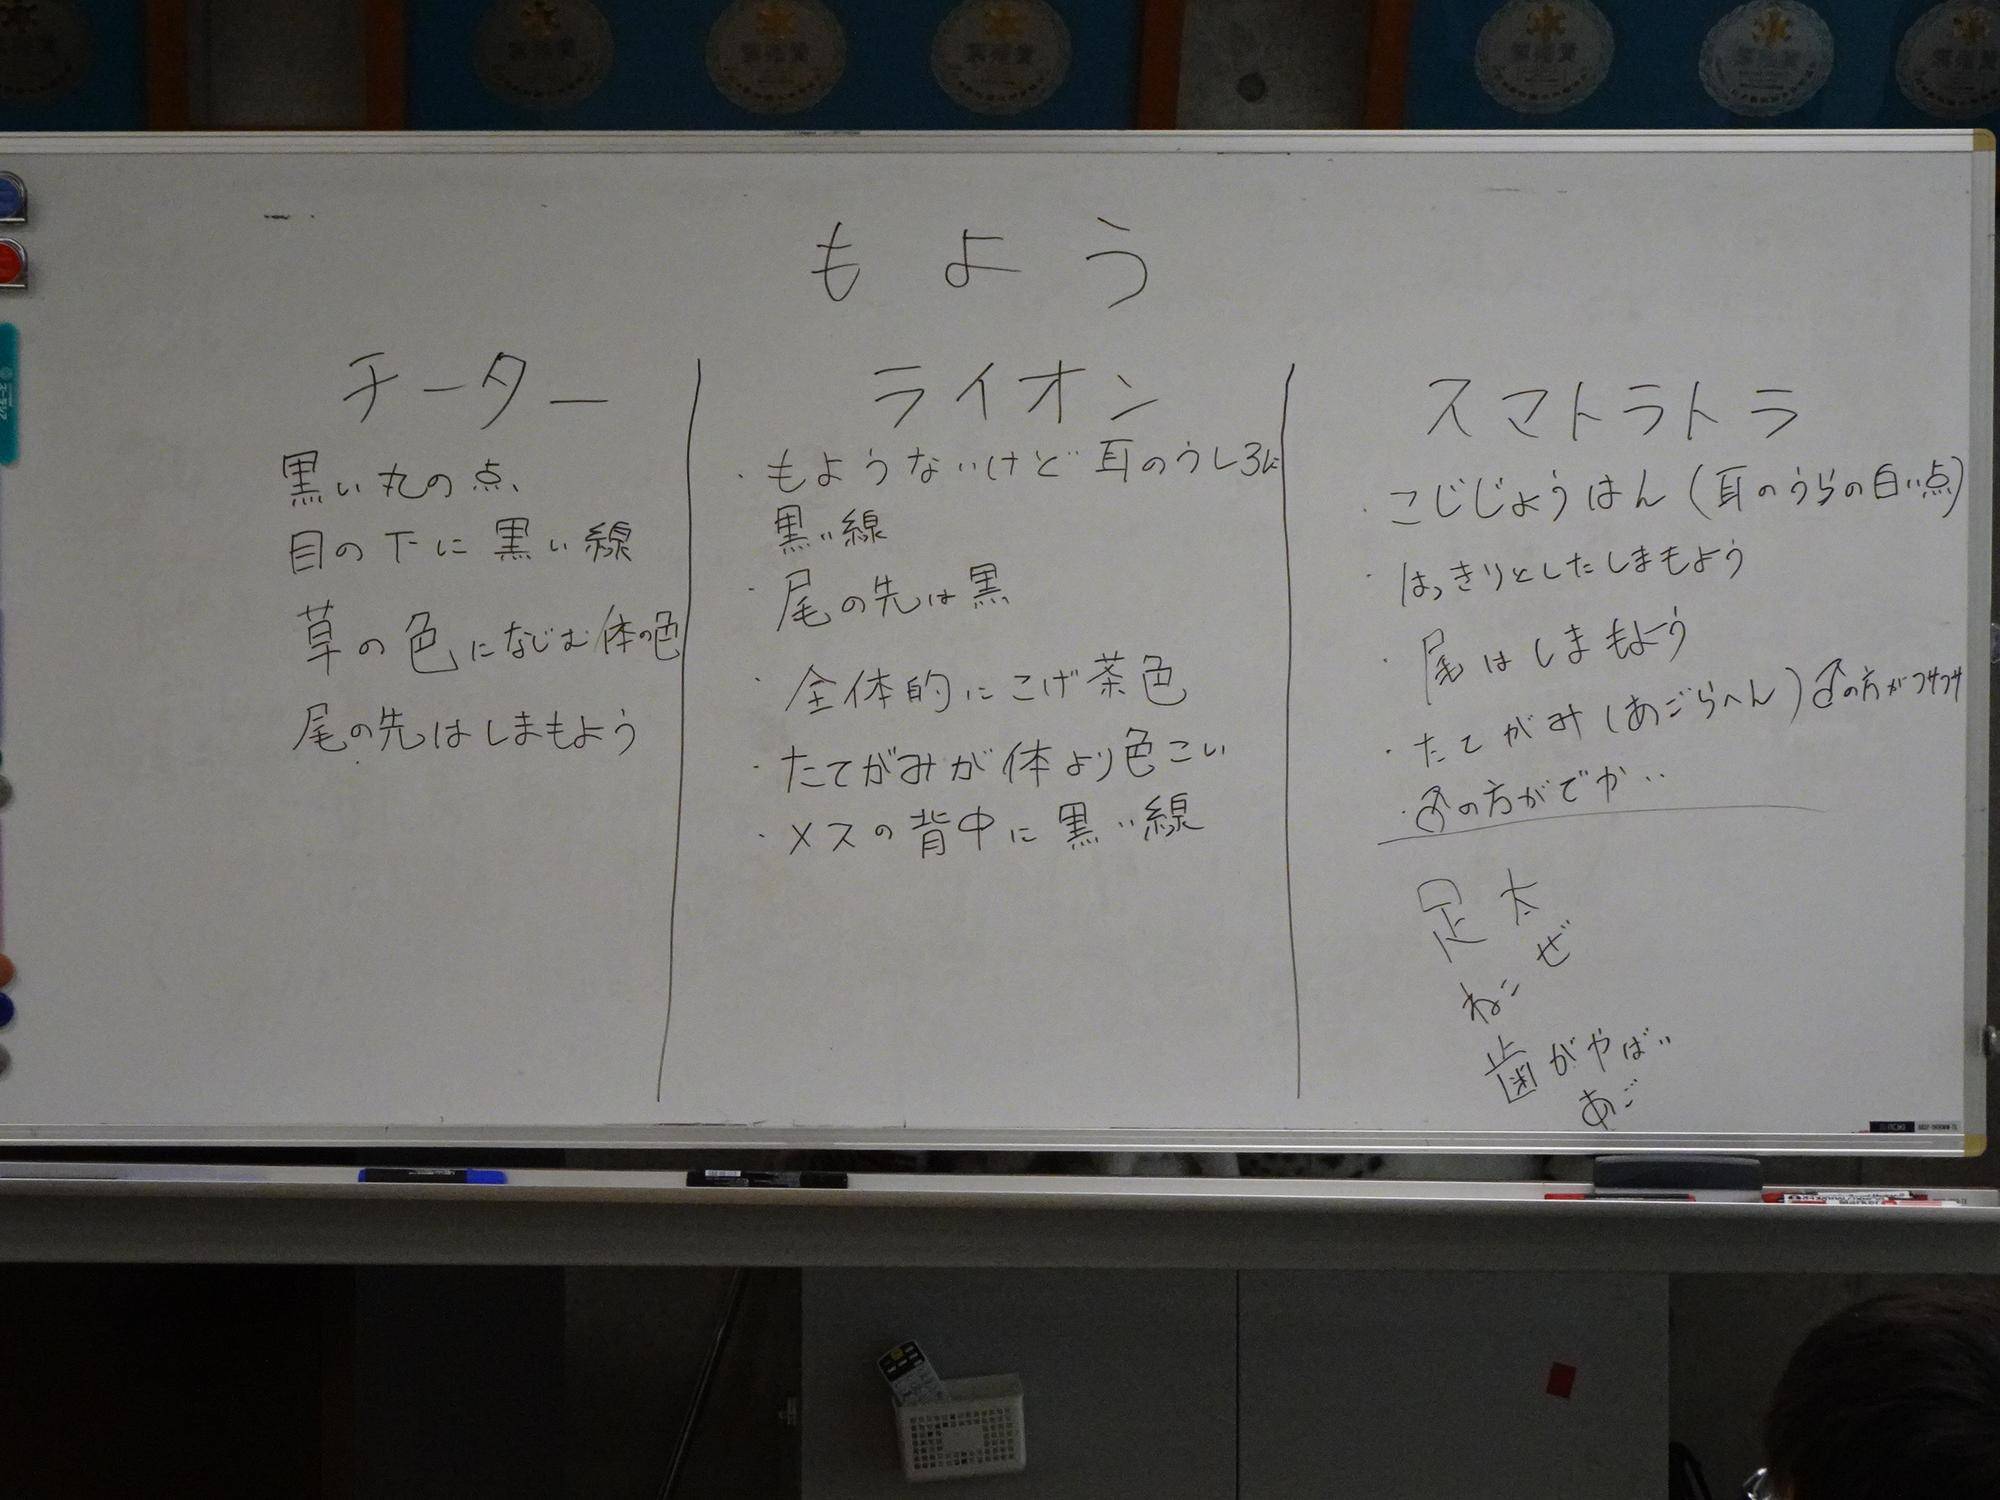 もよう
チーター
黒い丸の点、
目の下に黒い線
草の色になじむ体の色
尾の先はしまもよう
ライオン
・もようないけど耳のうしろに
黒い線
・尾の先は黒
・全体的にこげ茶色
・たてがみが体より色こい
・メスの背中に黒い線
スマトラトラ
・こじじょうはん(耳のうらの白い点)
・はっきりとしたしまもよう
・尾はしまもよう
・たてがみ(あごらへん)♂の方がフサフサ
・♂の方がでかい
足太
ぜ
ねこ
歯がやばい
あご